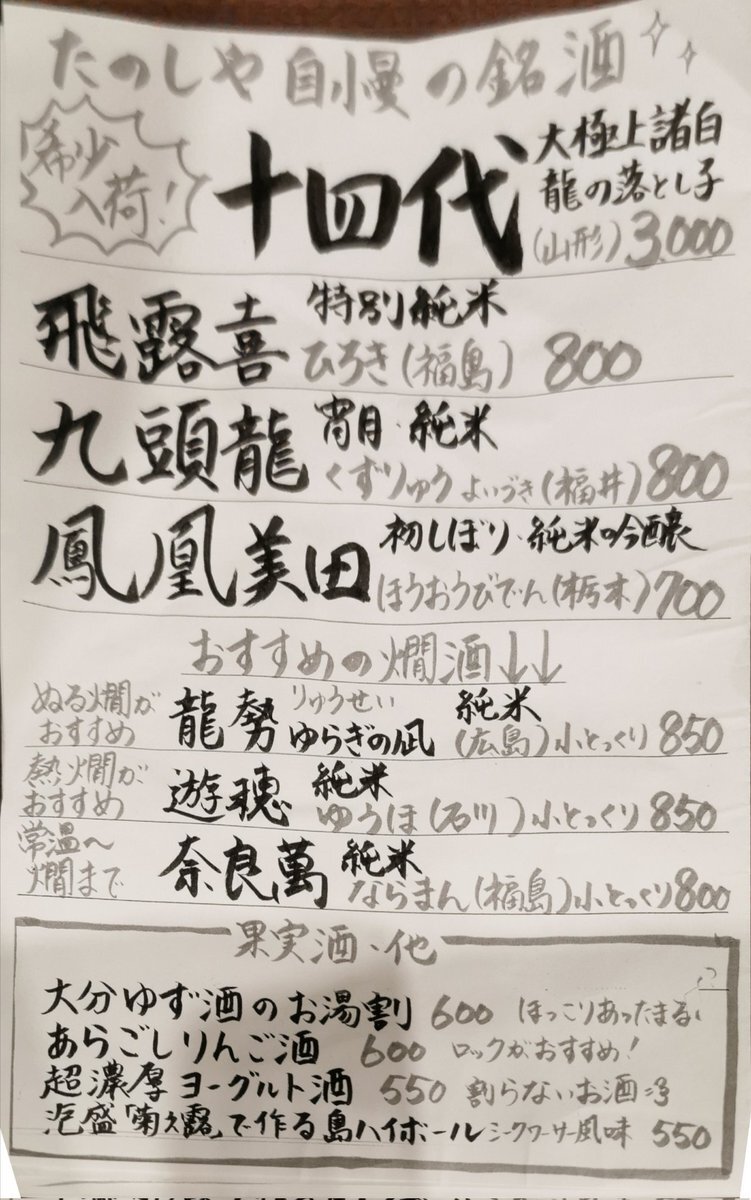 たのしや自慢の銘酒
希少
入荷!
十四代
大極上諸白
龍の落とし子
(山形) 3,000
飛露喜
特別純米
ひろき(福島) 800
九頭龍
宵月・純米
くずりゅう よいづき(福井) 800
鳳凰美田
初しぼり・純米吟醸
ほうおうびでん(栃木) 700
おすすめの燗酒↓↓
ぬる燗が
おすすめ
龍勢
りゅうせい
ゆらぎの凪
純米
(広島)小とっくり 850
熱燗が
おすすめ
遊穂
純米
ゆうほ(石川)小とっくり 850
常温〜
燗まで
奈良萬
純米
ならまん(福島)小とっくり 800
果実酒・他
大分ゆず酒のお湯割 600 ほっこりあったまるぅ
あらごしりんご酒 600 ロックがおすすめ!
超濃厚ヨーグルト酒 550 割らないお酒
泡盛「菊之露」で作る島ハイボール シークワーサー風味 550